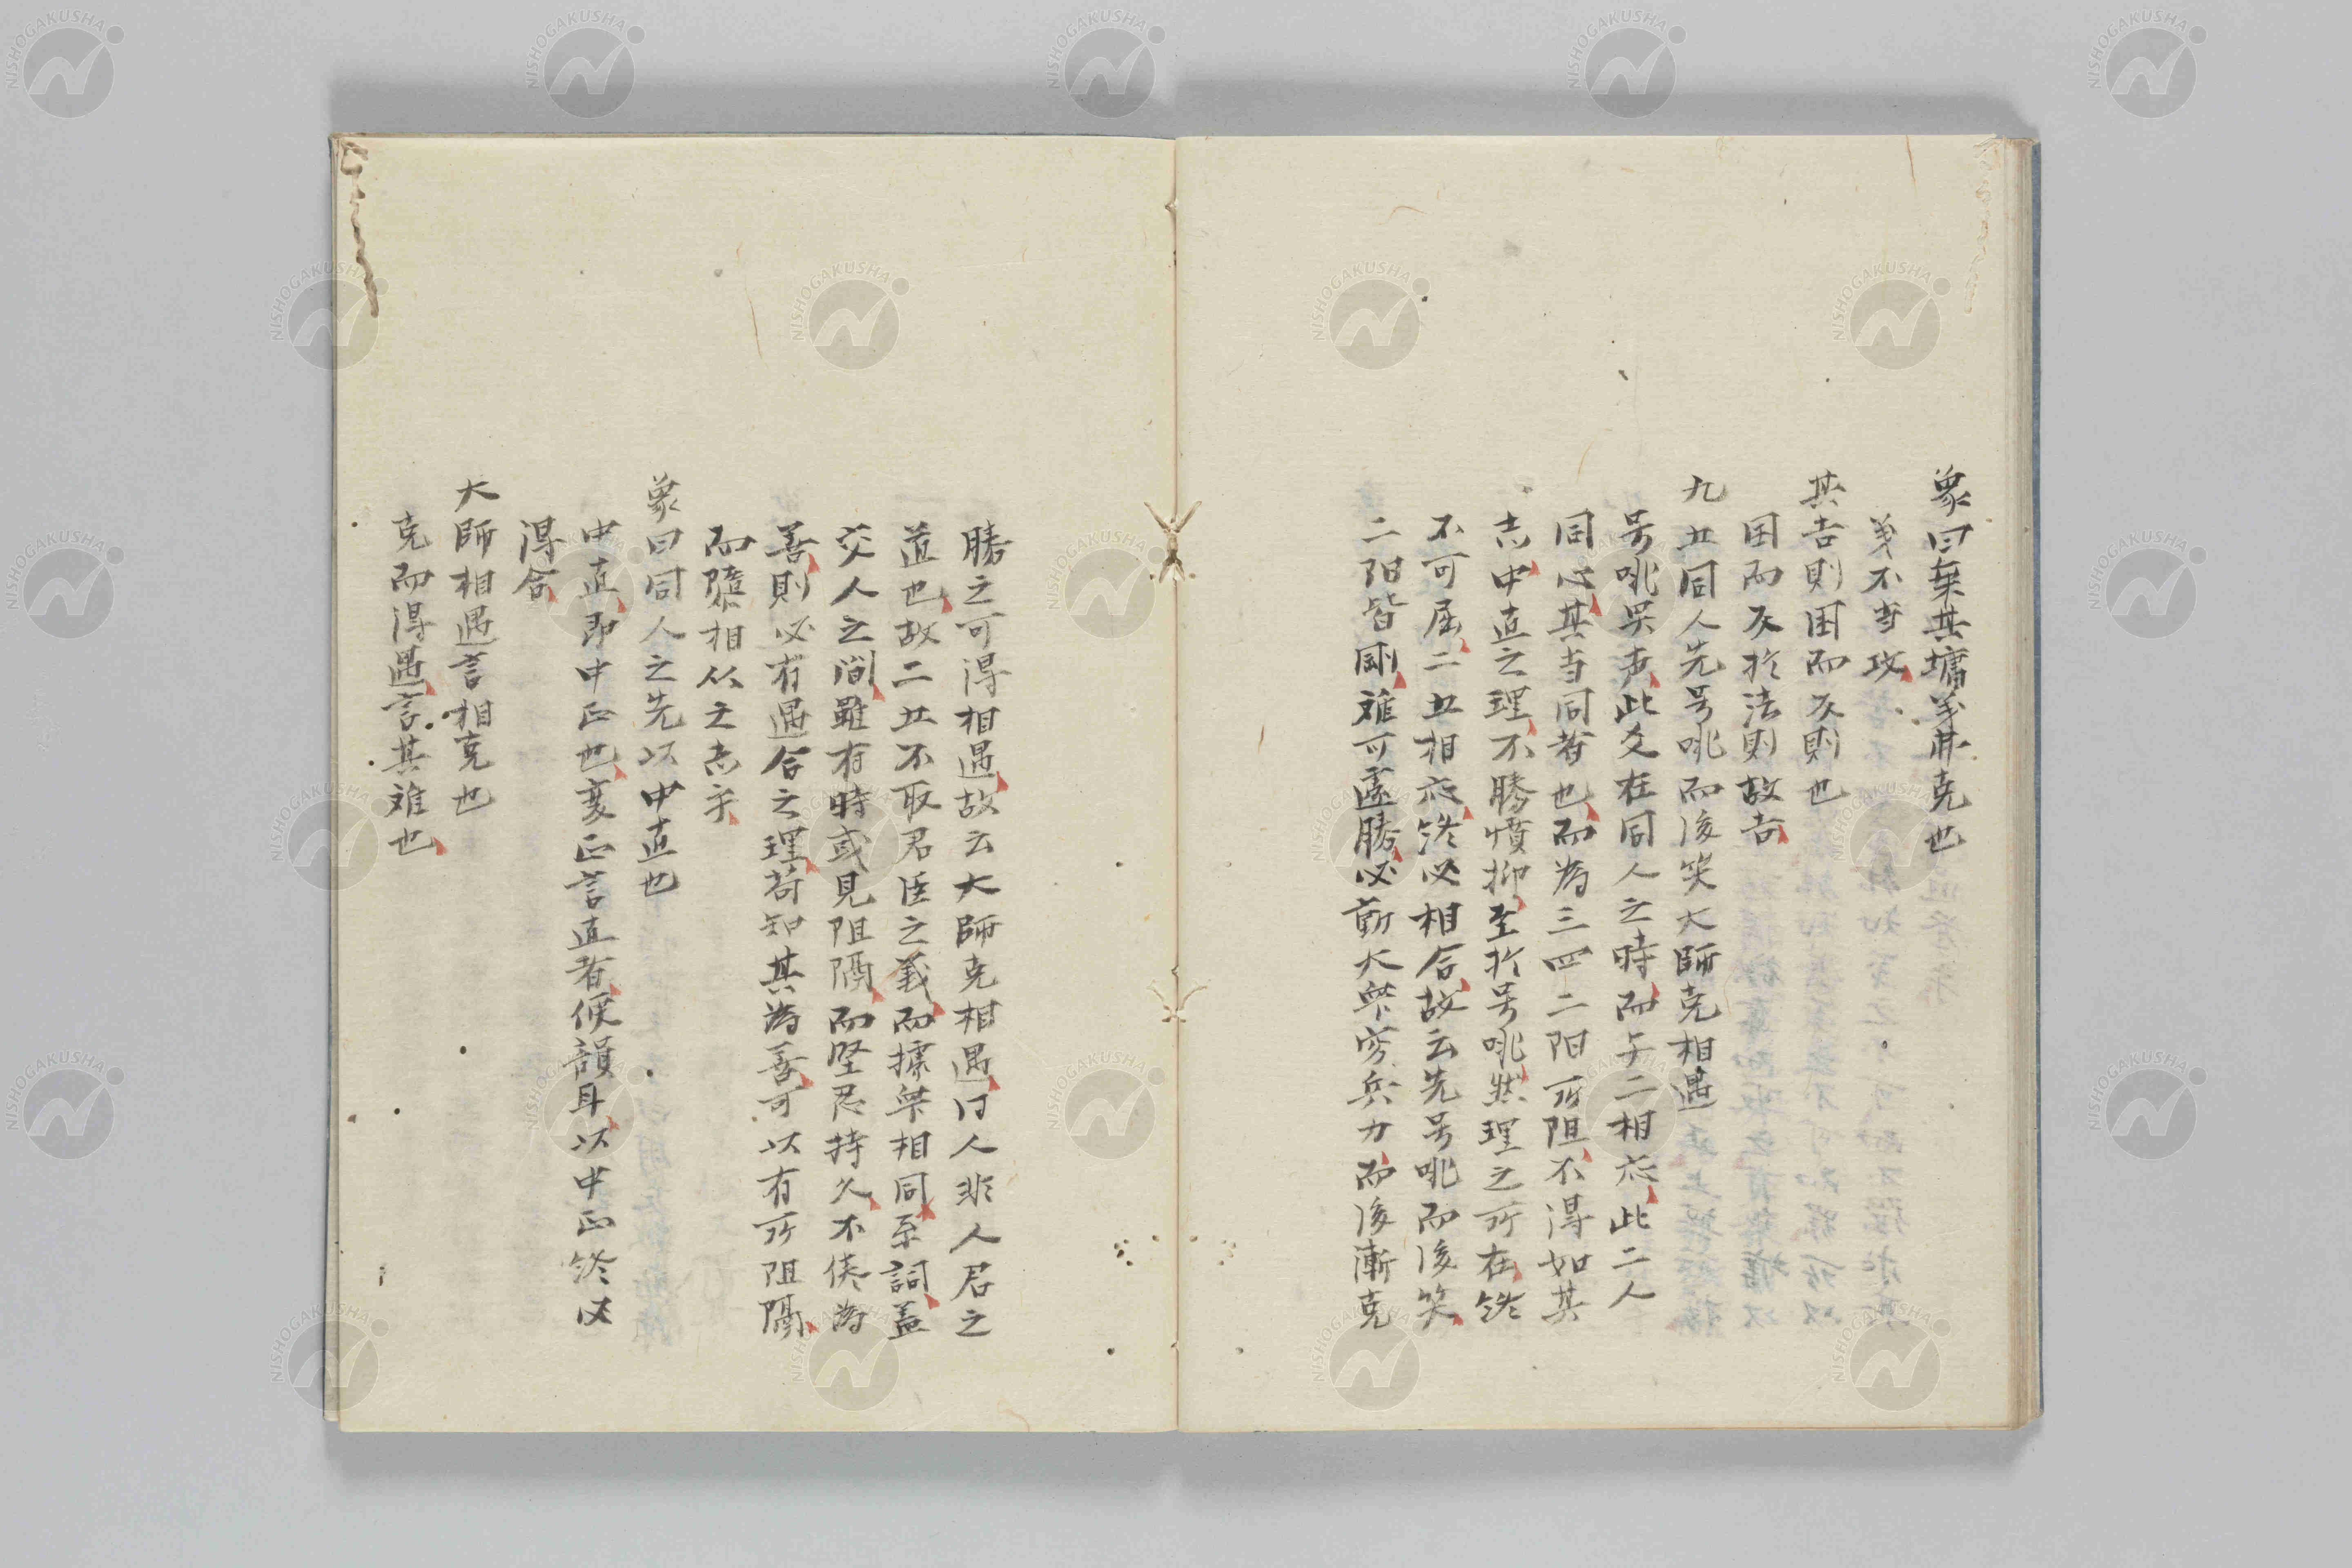 象曰乗其墉義弗克也
義不当攻
其吉則困而反則也
困而反於法則故吉
九五同人先号咷而後笑大師克相遇
号咷哭声此爻在同人之時而与二相応此二人
同心其当同者也而為三四二阳所阻不得如其
志中直之理不勝憤抑至於号咷然理之所在終
不可屈二五相応終必相合故云先号咷而後笑
二阳皆剛难可遽勝必蕲大衆穷兵力而後漸克
勝之可得相遇故云大師克相遇同人非人君之
道也故二五不取君臣之義而據衆相同系詞盖
交人之间雖有時或見阻隔而堅忍持久不使為
善則必有遇合之理苟知其為善可以有所阻隔
而隳相从之志乎
象曰同人之先以中直也
中直即中正也変正言直者候韻耳以中正終必
得合
大師相遇言相克也
克而得遇言其难也
NISHOGAKUSHA